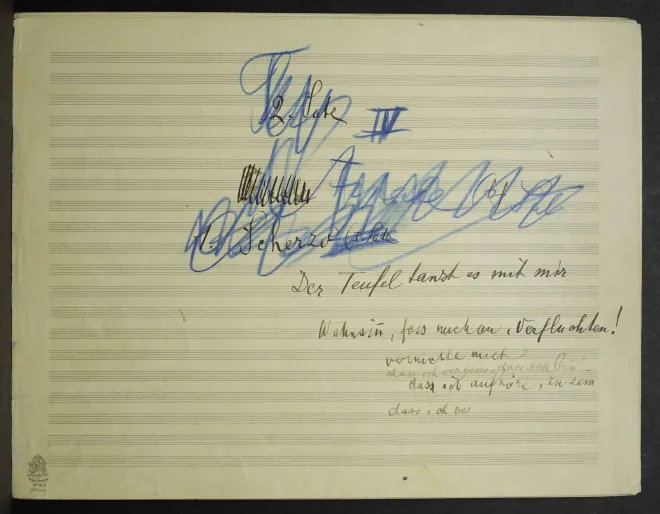 2. Satz
IV
1. Scherzo (2. Satz
Der Teufel tanzt es mit mir
Wahnsinn, fass mich an, Verfluchten!
vernichte mich
dass ich vergesse, dass ich bin!
dass ich aufhöre, zu sein
dass ich ver